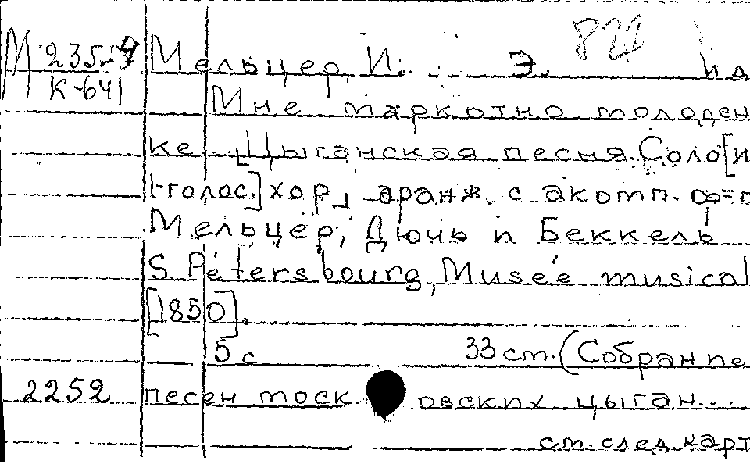 М 235-9 Мельцер, И. Э. 822
К-641 Мне моркотно молоден
ке. Цыганская песня. Соло [и
1-голос.] хор, аранж. с акомп. ф=п
Мельцер, Дюнь и Беккель
S. Petersbourg, Musée musical
[1850].
5 с 33 см. (Собрание
2252 песен московских цыган...
см. след. карт